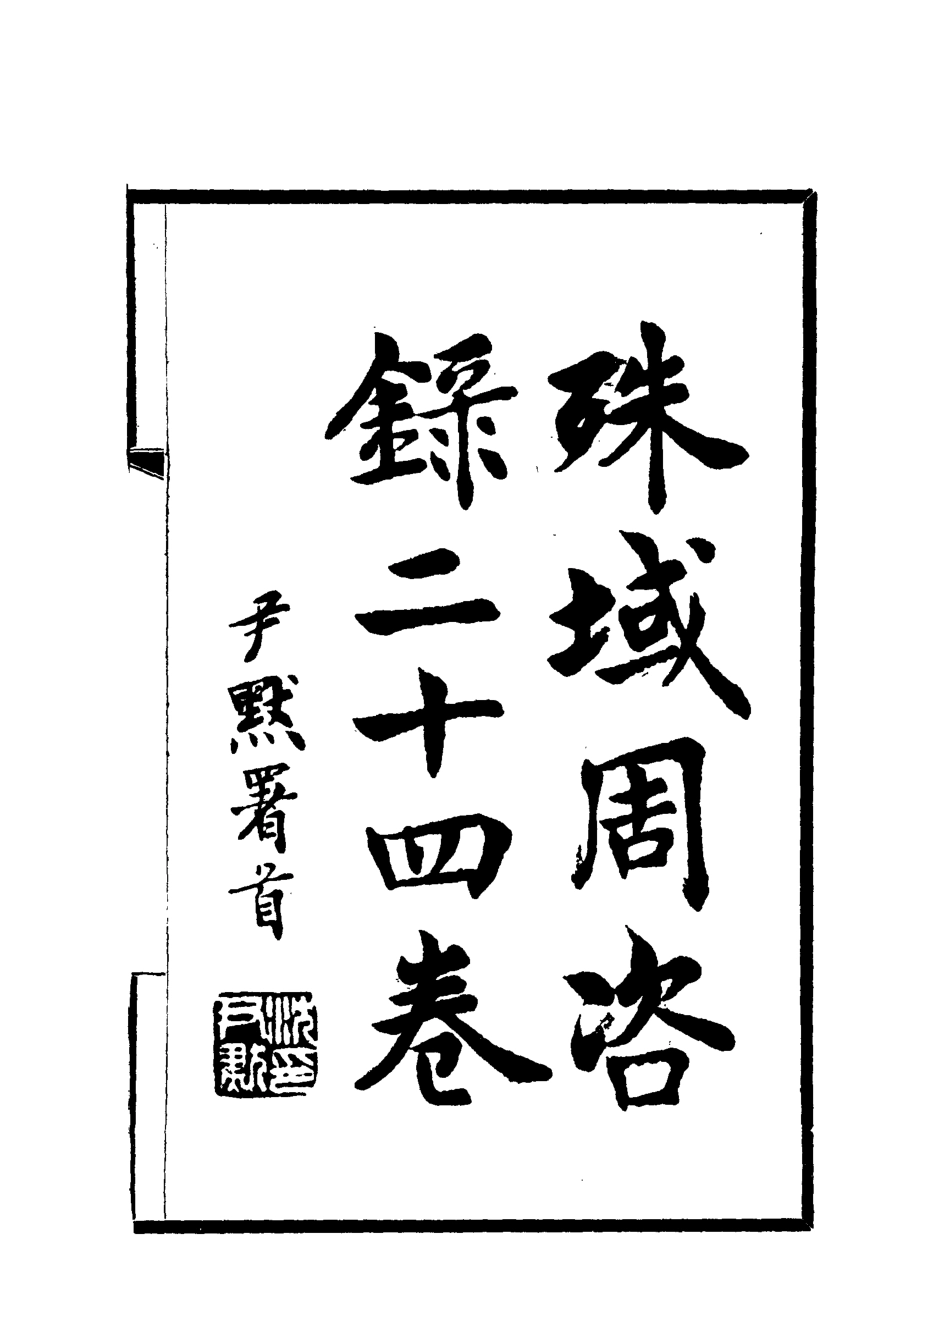 殊域周咨
錄二十四卷
尹默署首
沈印
尹默